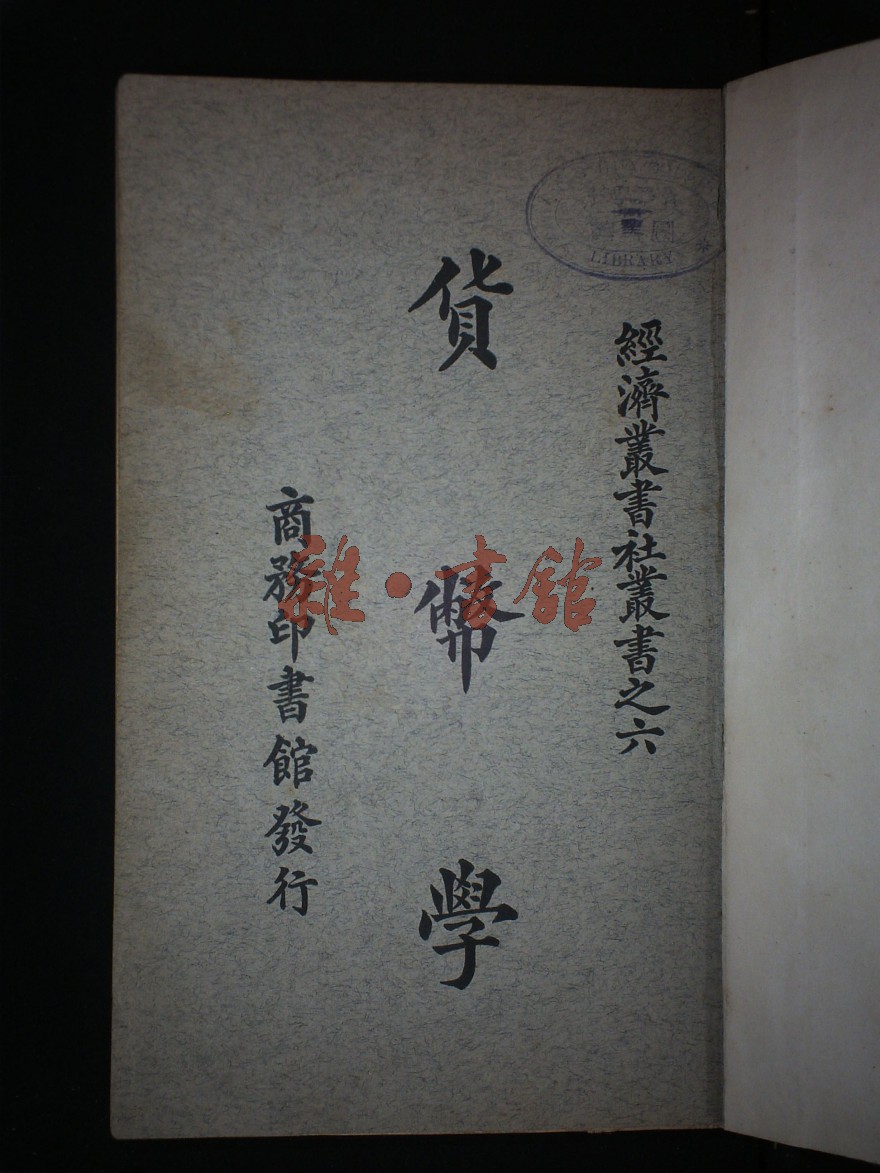 經濟叢書社叢書之六
貨幣學
商務印書館發行
雜·書館
LIBRARY